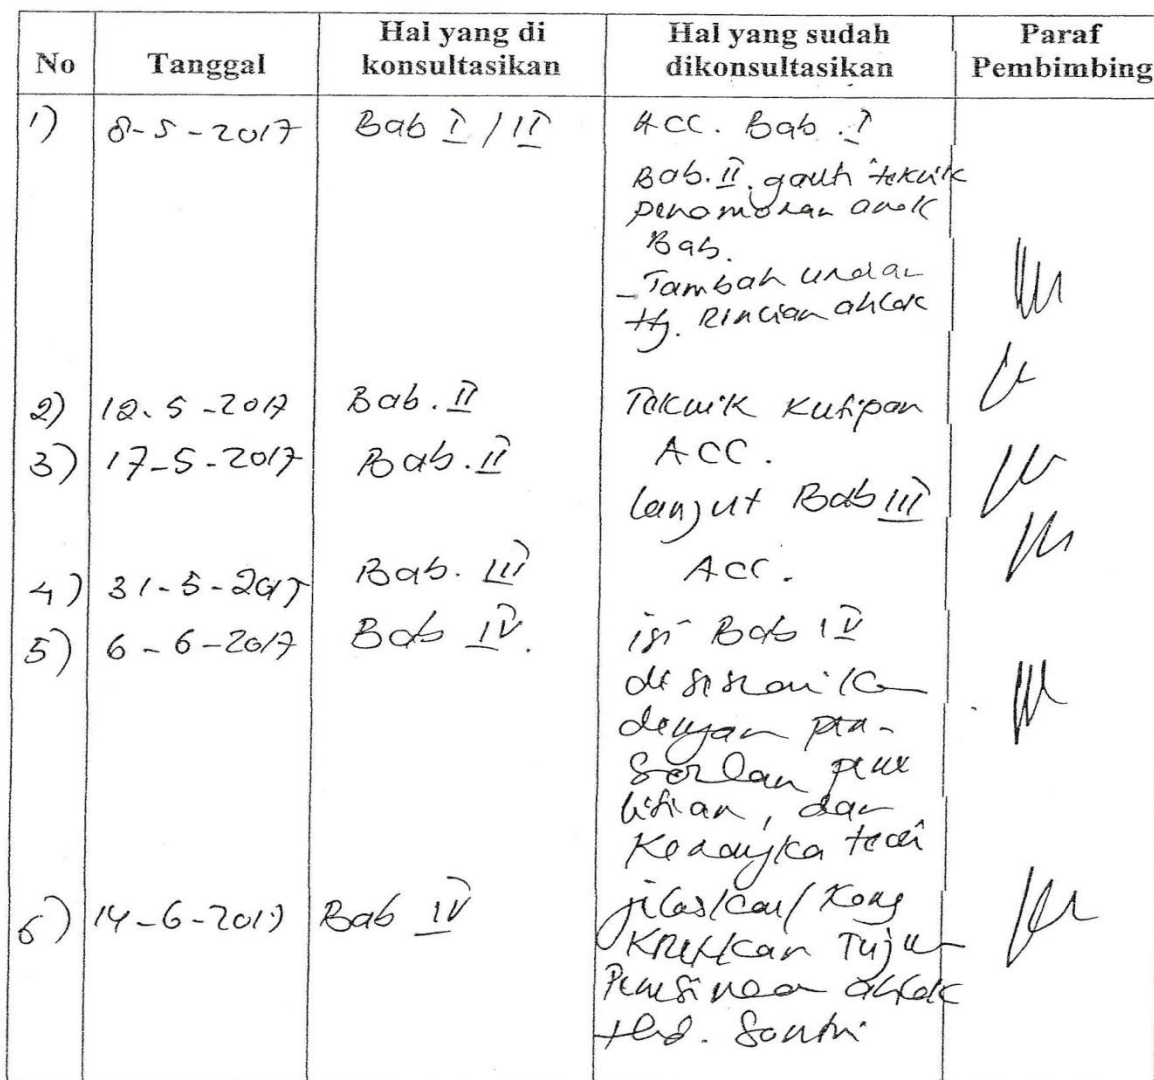 No Tanggal Hal yang di konsultasikan Hal yang sudah dikonsultasikan Paraf Pembimbing
1) 8-5-2017 Bab I / II ACC. Bab. I
Bab. II. ganti teknik
penomoran anak
Bab.
- Tambah
ttg. Rincian ahlak
2) 12-5-2017 Bab. II Teknik Kutipan
3) 17-5-2017 Bab. II ACC.
lanjut Bab III
4) 31-5-2017 Bab. III ACC.
5) 6-6-2017 Bab IV. isi Bab IV
dengan per-
soalan pene
litian, dan
Kerangka teori
6) 14-6-2017 Bab IV jelaskan/Kong
Kritkan Tujuan
Pembinaan ahlak
thd. Santri